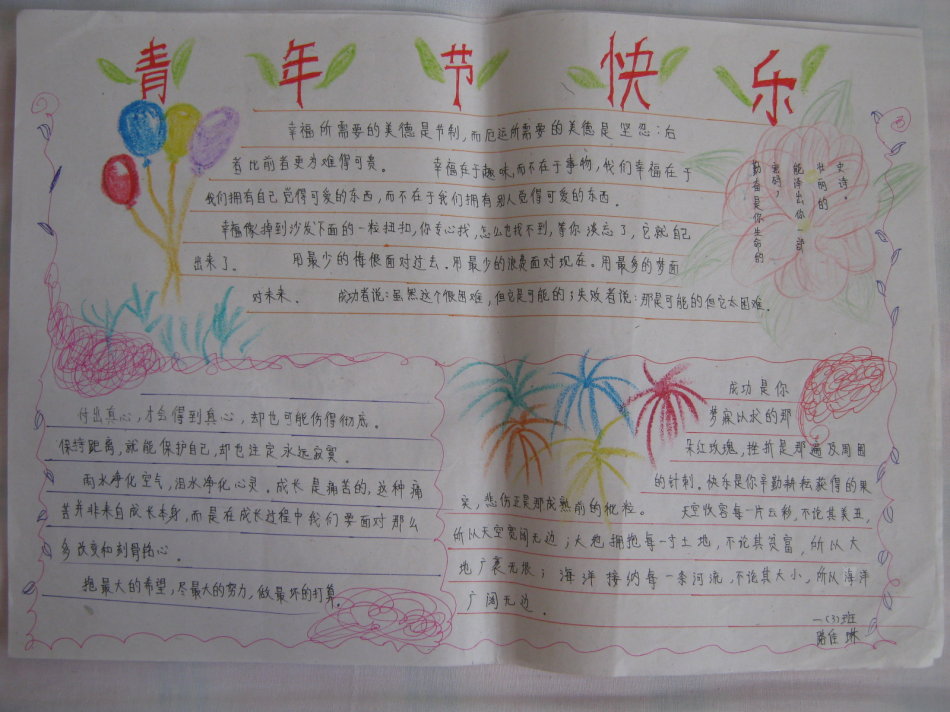 青年节快乐
幸福所需要的美德是节制,而厄运所需要的美德是坚忍:后
者比前者更为难得可贵。 幸福在于趣味,而不在于事物,我们幸福在于
我们拥有自己觉得可爱的东西,而不在于我们拥有别人觉得可爱的东西。
幸福像掉到沙发下面的一粒扭扣,你专心找,怎么也找不到,等你淡忘了,它就自己
出来了。 用最少的悔恨面对过去。用最少的浪费面对现在。用最多的梦面
对未来。 成功者说:虽然这个很困难,但它是可能的了失败者说:那是可能的但它太困难.
史诗。
壮丽的
能译出你一部
密码,
勤奋是你生命的
付出真心,才会得到真心,却也可能伤得彻底。
保持距离,就能保护自己,却也注定永远寂寞。
雨水净化空气,泪水净化心灵。成长是痛苦的,这种痛
苦并非来自成长本身,而是在成长过程中我们要面对那么
多改变和刻骨铭心。
抱最大的希望,尽最大的努力,做最坏的打算。
成功是你
梦寐以求的那
朵红玫瑰,挫折是那遍及周围
的针刺。快乐是你辛勤耕耘获得的果
实,悲伤正是那成熟前的秕粒。 天空收容每一片云彩,不论其美丑,
所以天空宽阔无边;大地拥抱每一寸土地,不论其贫富,所以大
地广袤无垠;海洋接纳每一条河流,不论其大小,所以海洋
广阔无边.
一(3)班
佳琳